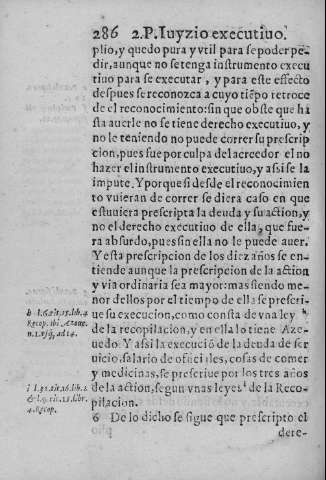 286 2.P. Iuyzio executiuo.
plio, y quedo pura y vtil para se poder pe-
dir, aunque no se tenga instrumento execu
tiuo para se executar, y para este effecto
despues se reconozca a cuyo tiẽpo retroce
de el reconocimiento: sin que obste que ha
sta auerle no se tiene derecho executiuo, y
no le teniendo no puede correr su prescrip
cion, pues fue por culpa del acreedor el no
hazer el instrumento executiuo, y assi se la
impute. Y porque si desde el reconocimien
to vuieran de correr se diera caso en que
estuuiera prescripta la deuda y su action, y
no el derecho executiuo de ella, que fue-
ra absurdo, pues sin ella no le puede auer.
Y esta prescripcion de los diez años se en-
tiende aunque la prescripcion de la action
y via ordinaria sea mayor: mas siendo me-
nor dellos por el tiempo de ella se prescri-
ue su execucion, como consta de vna ley h
de la recopilacion, y en ella lo tiene Aze-
uedo. Y assi la execuciõ de la deuda de ser
uicio, salario de oficiales, cosas de comer
y medicinas, se prescriue por los tres años
de la action, segun vnas leyes i de la Reco-
pilacion.
6 De lo dicho se sigue que prescripto el
dere-
h l.6.tit.15.lib.4
Recop. ibi, Azeue.
i l.32.tit.16.lib.2
& l.9.tit.15.libr.
4.Recop.